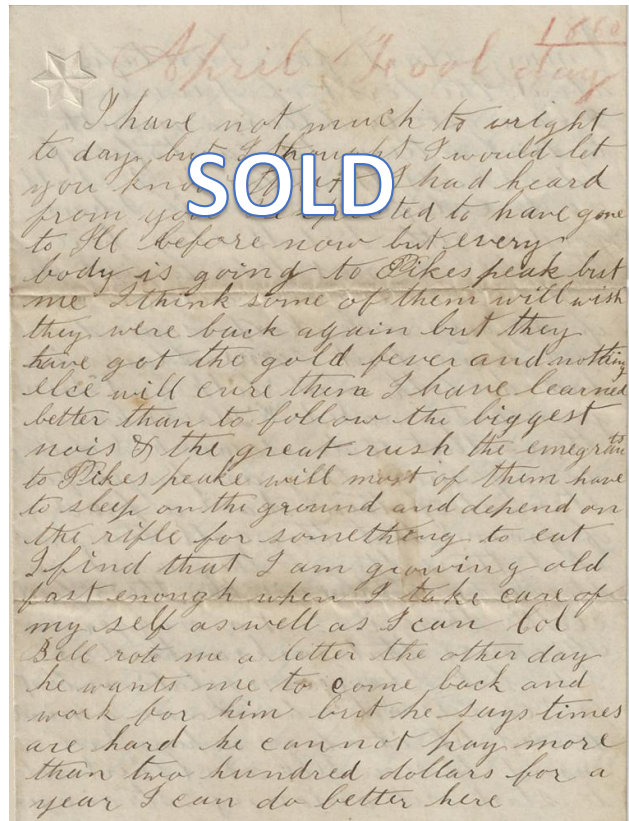 1860
April Fool day
I have not much to wright
to day but I thought I would let
you know that I had heard
from you I expected to have gone
to Ill before now but every
body is going to Pikes peak but
me I think some of them will wish
they were back again but they
have got the gold fever and nothing
else will cure them I have learned
better than to follow the biggest
nois & the great rush the emegrants
to Pikes peake will most of them have
to sleep on the ground and depend on
the rifle for something to eat
I find that I am growing old
fast enough when I take care of
my self as well as I can Col
Bell rote me a letter the other day
he wants me to come back and
work for him but he says times
are hard he can not pay more
than two hundred dollars for a
year I can do better here
SOLD